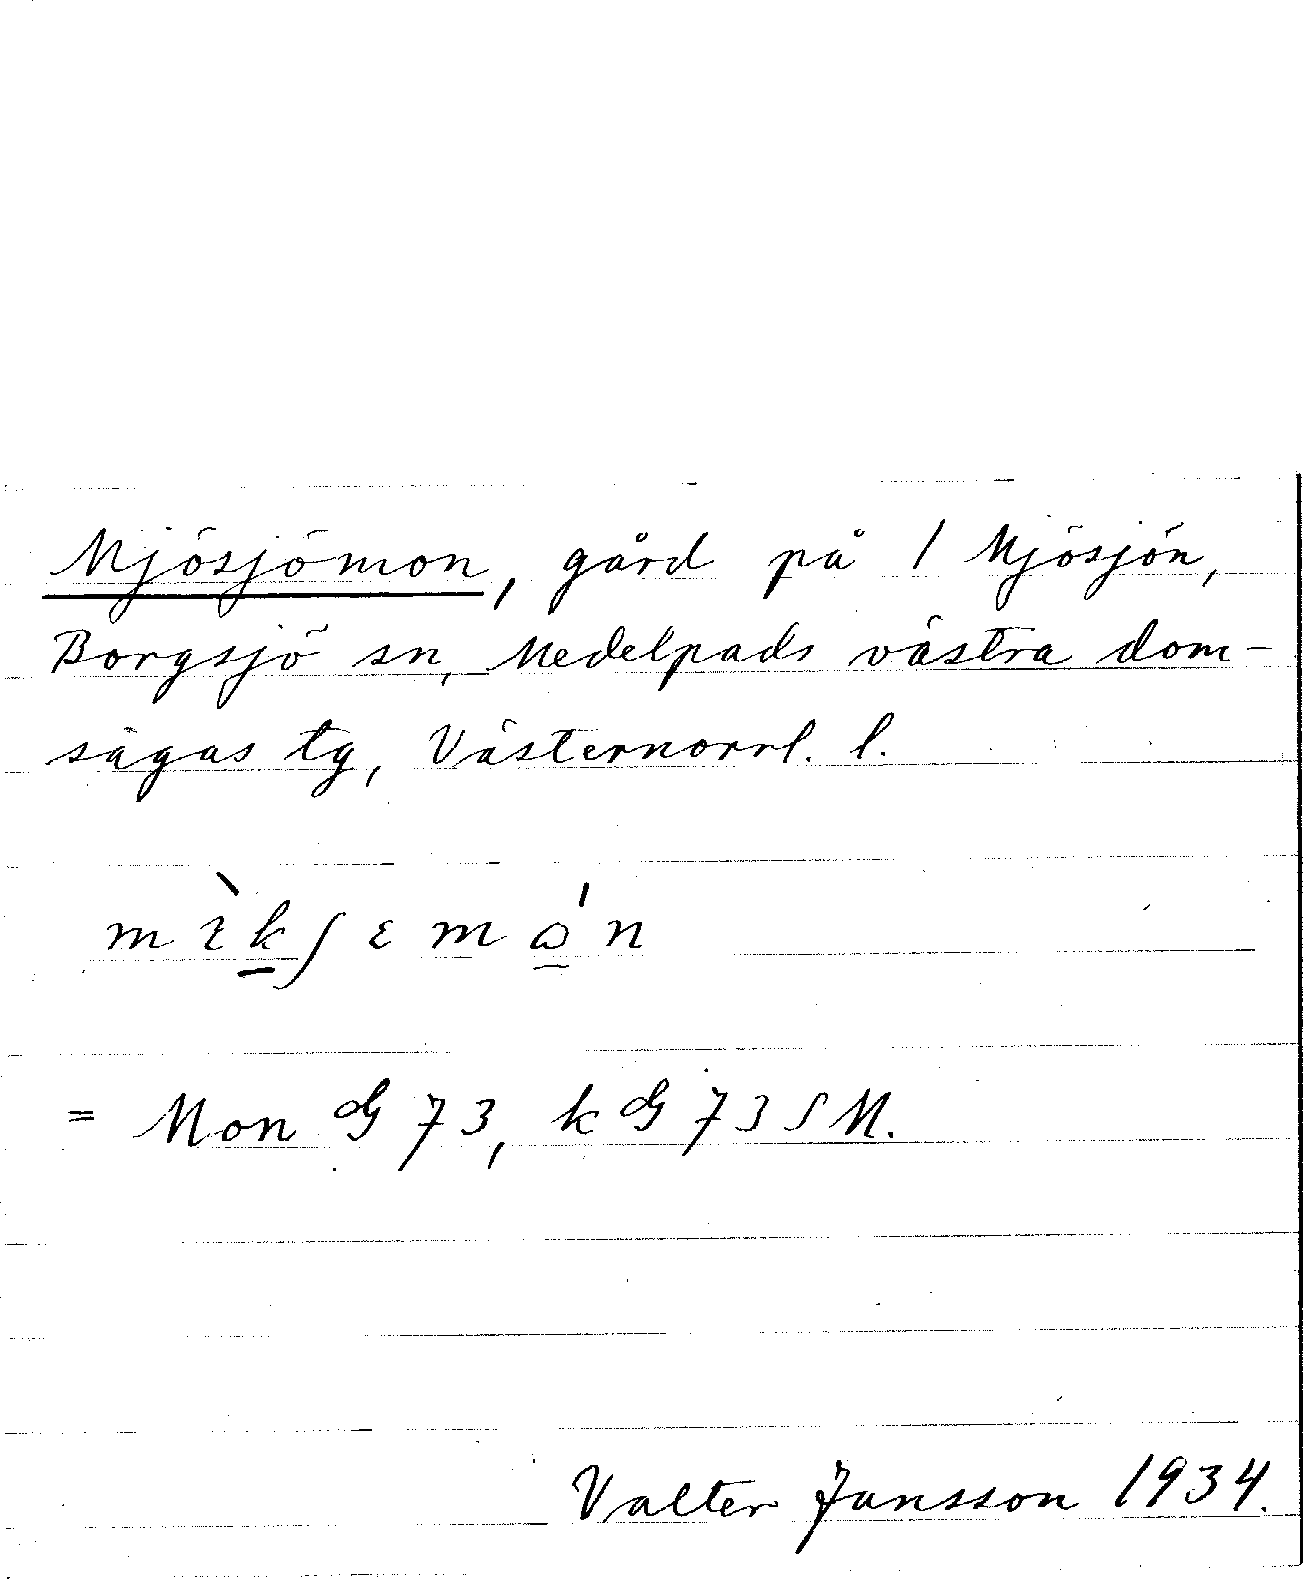 Mjösjömon, gård på 1 Mjösjön,
Borgsjö sn, Medelpads västra dom-
sagas tg, Västernorrl. l.
= Mon 73, k 73 SM.
Valter Jansson 1934.